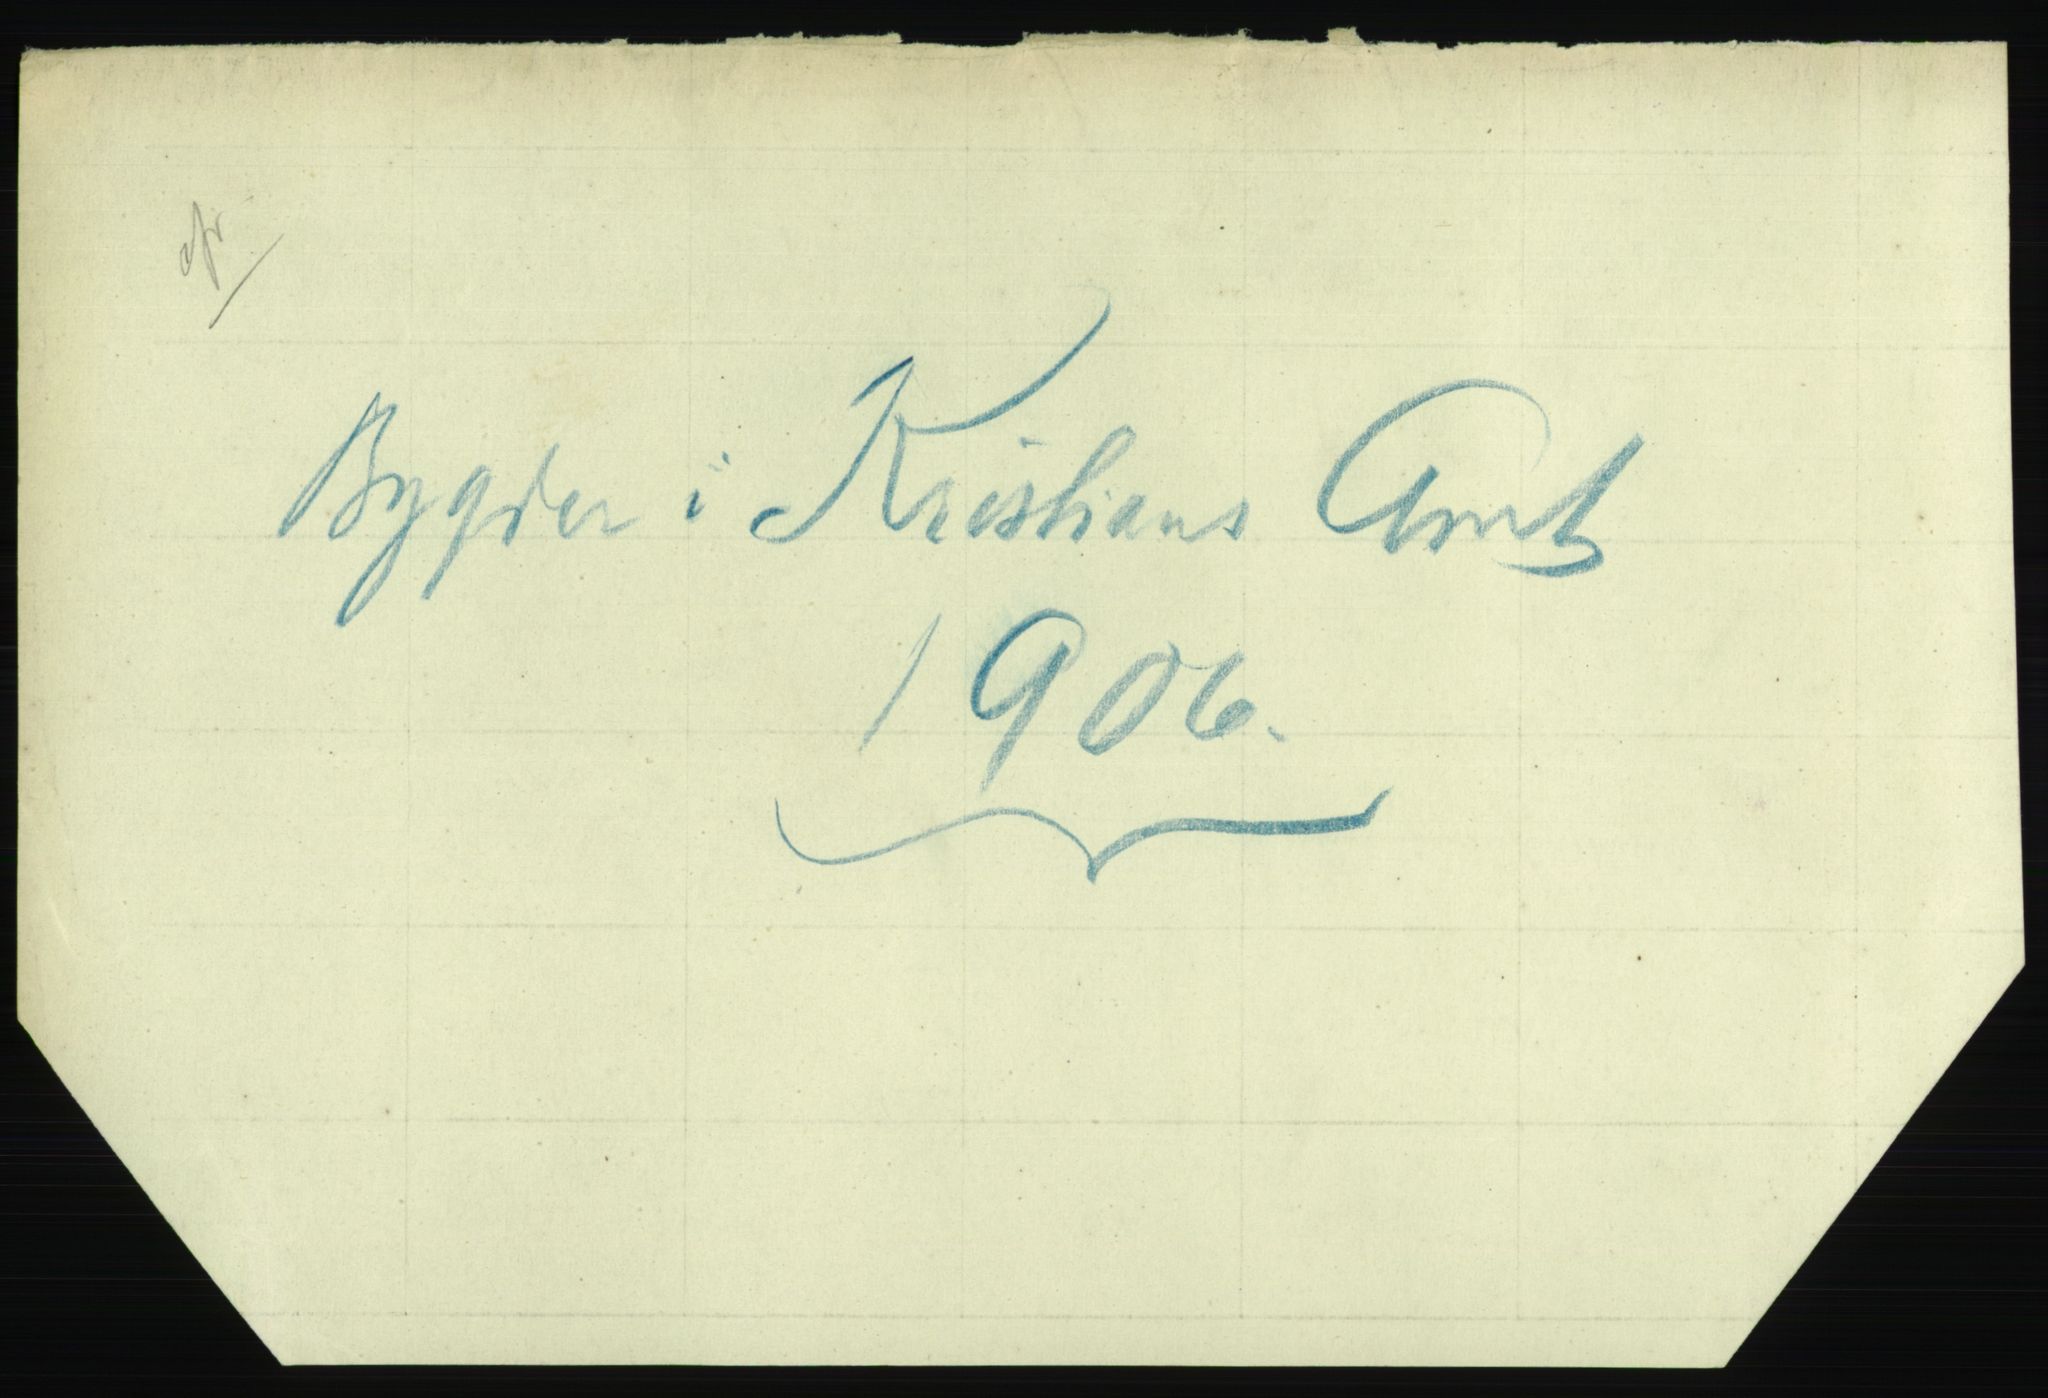 Bygder i Kristians Amt
1906.